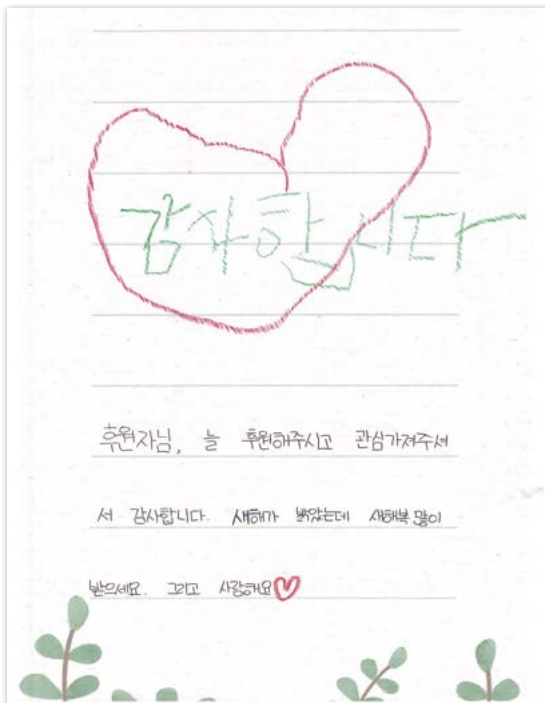 감사합니다
후원자님, 늘 후원해주시고 관심가져주셔
서 감사합니다. 새해가 밝았는데 새해복 많이
받으세요. 그리고 사랑해요